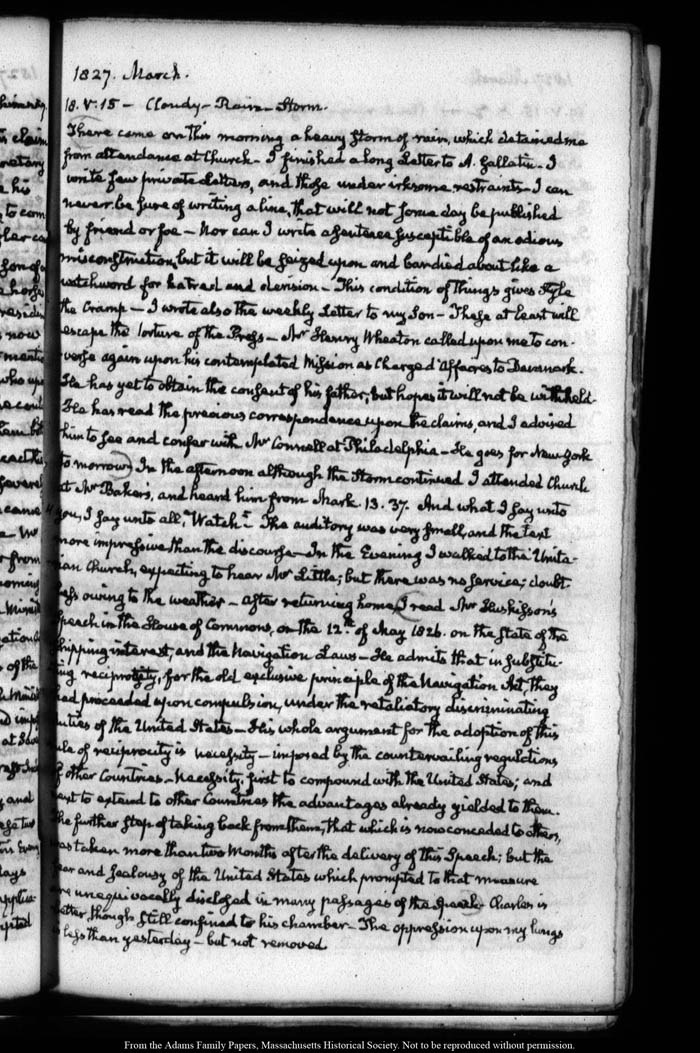 1827. March.
18. V. 15 - Cloudy - Rain - Storm.
There came on this morning a heavy Storm of rain, which detained me
from attendance at Church - I finished a long Letter to A. Gallatin - I
write few private Letters, and those under irksome restraints - I can
never be sure of writing a line, that will not some day be published
by friend or foe - Nor can I write a sentence susceptible of an odious
misconstruction, but it will be seized upon and bandied about like a
watchword for hatred and derision - This condition of things gives style
the Cramp - I wrote also the weekly Letter to my Son - These at least will
escape the torture of the Press - Mr Henry Wheaton called upon me to con-
verse again upon his contemplated Mission as Chargé d'Affaires to Denmark.
He has yet to obtain the consent of his father; but hopes it will not be withheld.
He has read the precious correspondence upon the claims, and I advised
him to see and confer with Mr Connell at Philadelphia - He goes for New York
to morrow) In the afternoon although the Storm continued I attended Church
at Mr Baker's, and heard him from Mark. 13. 37. And what I say unto
you, I say unto all, "Watch" - The auditory was very small, and the text
more impressive than the discourse - In the Evening I walked to the Unita-
rian Church, expecting to hear Mr Little; but there was no service; doubt-
less owing to the weather - After returning home, I read Mr Huskisson's
Speech in the House of Commons, on the 12th of May 1826. on the State of the
Shipping interest, and the Navigation Laws - He admits that in substitu-
ting reciprocity, for the old exclusive principle of the Navigation Act, they
had proceeded upon compulsion, under the retaliatory discriminating
duties of the United States - His whole argument for the adoption of this
rule of reciprocity is necessity - imposed by the countervailing regulations
of other Countries - Necessity, first to compound with the United States; and
next to extend to other Countries the advantages already yielded to them.
The further step of taking back from them, that which is now conceded to others,
was taken more than two Months after the delivery of this Speech; but the
fear and Jealousy of the United States which prompted to that measure
are unequivocally disclosed in many passages of the Speech - Charles is
better, though still confined to his chamber - The oppression upon my lungs
is less than yesterday - but not removed
From the Adams Family Papers, Massachusetts Historical Society. Not to be reproduced without permission.